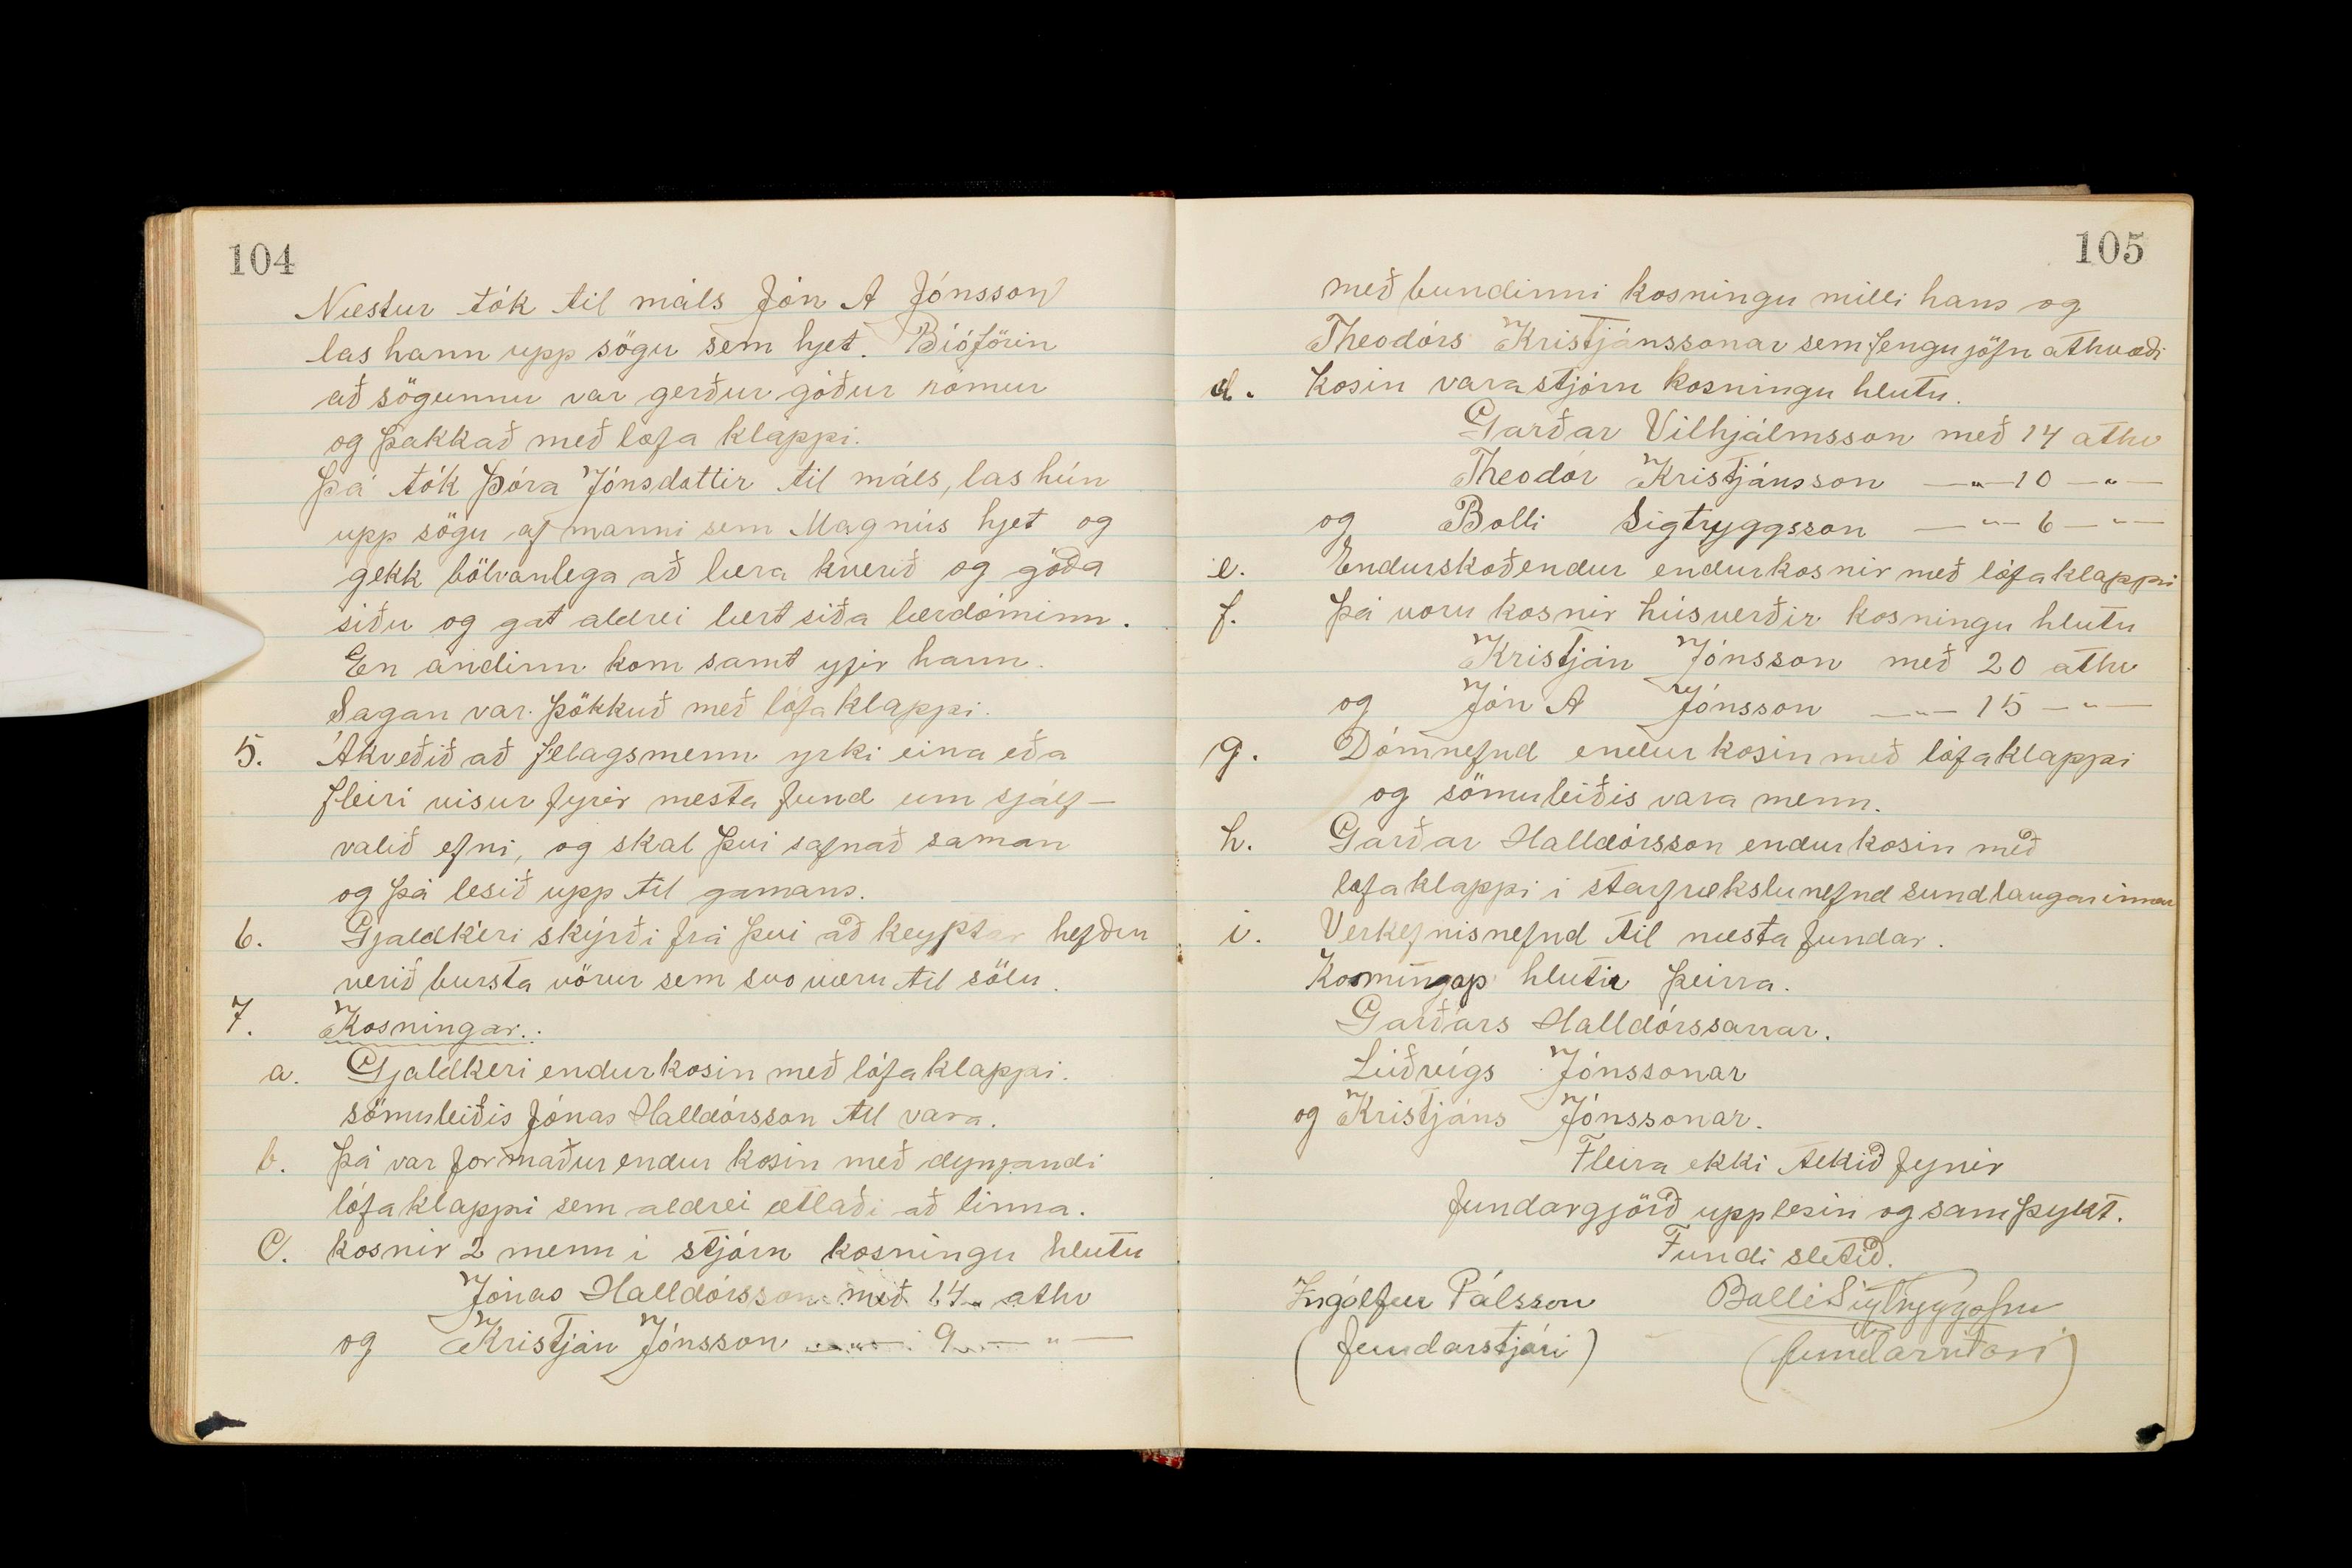 104
Næstur tók til máls Jón A Jónsson
las hann upp sögu sem hjet. Bíóförin
að sögunnu var gerður góður rómur
og þakkað með lofa klappi.
Þá tók Þóra Jónsdóttir til máls, las hún
upp sögu af manni sem Magnús hjet og
gekk bölvanlega að læra kverið og góða
siðu og gat aldrei lært siða lærdóminn.
En andinn kom samt yfir hann.
Sagan var þökkuð með lófaklappi.
5. Ákveðið að felagsmenn yrki eina eða
fleiri visur fyrir næsta fund um sjálf-
valið efni, og skal því safnað saman
og þá lesið upp til gamans.
6. Gjaldkeri skýrði frá því að keyptar hefðu
verið bursta vörur sem svo væru til sölu.
7. Kosningar.
a. Gjaldkeri endurkosin með lófaklappi.
sömuleiðis Jónas Halldórsson til vara.
b. Þá var formaður endur kosin með dynjandi
lófaklappi sem aldrei ætlaði að linna.
C. kosnir 2 menn i stjórn kosningu hlutu
Jónas Halldórsson með 14 athv
og Kristján Jónsson —"— 9 —"—
105
með bundinni kosningu milli hans og
Theodórs Kristjánssonar sem fengu jöfn athvæði
d. kosin varastjórn kosningu hlutu.
Garðar Vilhjálmsson með 14 athv
Theodór Kristjánsson —"— 10 —"—
og Bolli Sigtryggsson —"— 6 —"—
e. Endurskoðendur endurkosnir með lófaklappi
f. Þá voru kosnir húsverðir kosningu hlutu
Kristján Jónsson með 20 athv
og Jón A Jónsson —"— 15 —"—
g. Dómnefnd endur kosin með lófaklappi
og sömuleiðis vara menn.
h. Garðar Halldórsson endurkosin með
lofaklappi i starfrækslunefnd sundlaugarinnar
i. Verkefnisnefnd til næsta fundar.
hlutu þeirra.
Garðars Halldórssonar.
Lúðvígs Jónssonar
og Kristjáns Jónssonar.
Fleira ekki tekið fyrir
fundargjörð upplesin og samþykt.
Fundi slitið.
Ingólfur Pálsson Bolli Sigtryggsson
(fundarstjóri) (fundarritari)